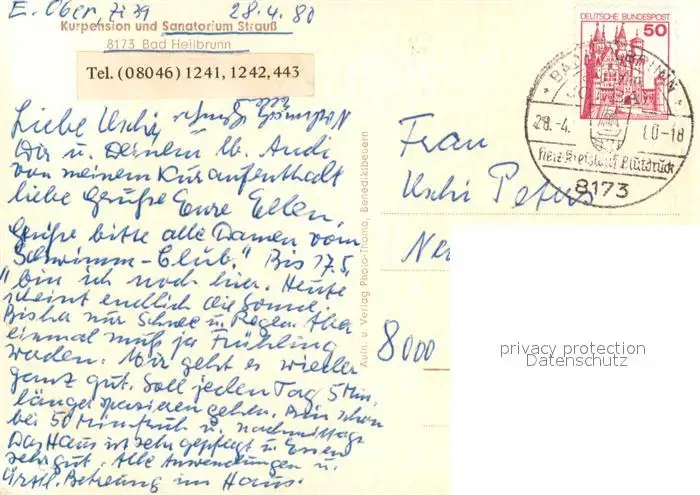 E. Ober, Zi 39 28.4.80
Kurpension und Sanatorium Strauß
8173 Bad Heilbrunn
Tel. (08046) 1241, 1242, 443
Liebe Uschi,
Dir u. Deinem lb. Andi
von meinem Kuraufenthalt
liebe Grüße Eure Ellen,
Grüße bitte alle Damen vom
"Schwimm-Club." Bis 17.5.
bin ich noch hier. Heute
scheint endlich die Sonne.
Bisher nur Schnee u. Regen. Aber
einmal muß ja Frühling
werden. Mir geht es wieder
ganz gut. Soll jeden Tag 5 Min.
länger spazieren gehen. Bin schon
bei 50 Min früh u. nachmittags
Das Haus ist sehr gepflegt u. Essen
sehr gut. Alle Anwendungen u.
ärztl. Betreuung im Haus.
Aufn. u. Verlag Photo-Thoma, Benediktbeuern
DEUTSCHE BUNDESPOST
50
BAD HEILBRUNN
28.-4. 80-18
Herz-Kreislauf Blutdruck
8173
Frau
Uschi Peters
Ne
8000
privacy protection
Datenschutz